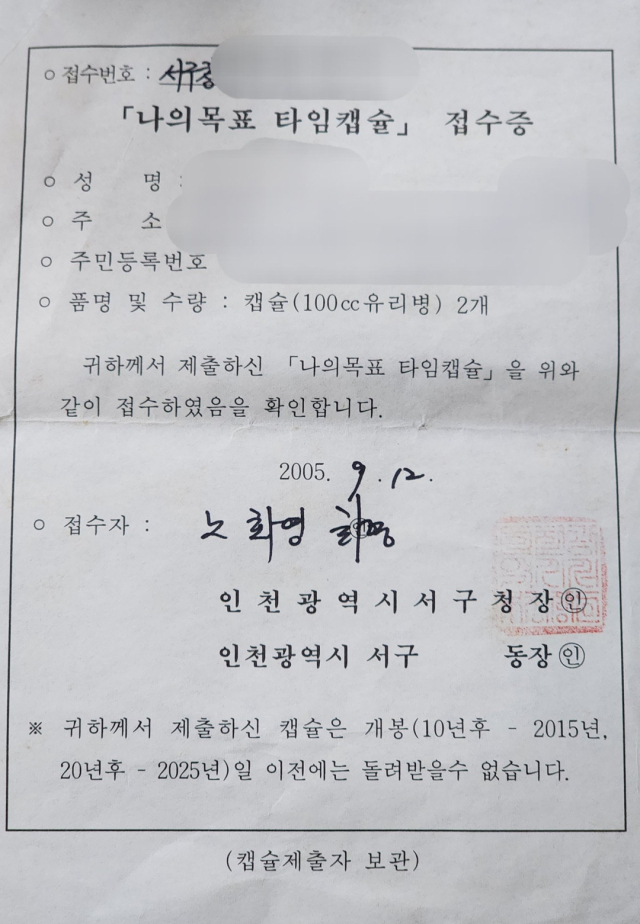 ○ 접수번호 : 서구청
「나의목표 타임캡슐」 접수증
○ 성 명 :
○ 주 소
○ 주민등록번호
○ 품명 및 수량 : 캡슐(100cc유리병) 2개
귀하께서 제출하신 「나의목표 타임캡슐」을 위와
같이 접수하였음을 확인합니다.
2005. 9. 12.
○ 접수자 : 노화영 ㊞
인천광역시서구청장㊞
인천광역시 서구 동장㊞
※ 귀하께서 제출하신 캡슐은 개봉(10년후 - 2015년,
20년후 - 2025년)일 이전에는 돌려받을수 없습니다.
(캡슐제출자 보관)